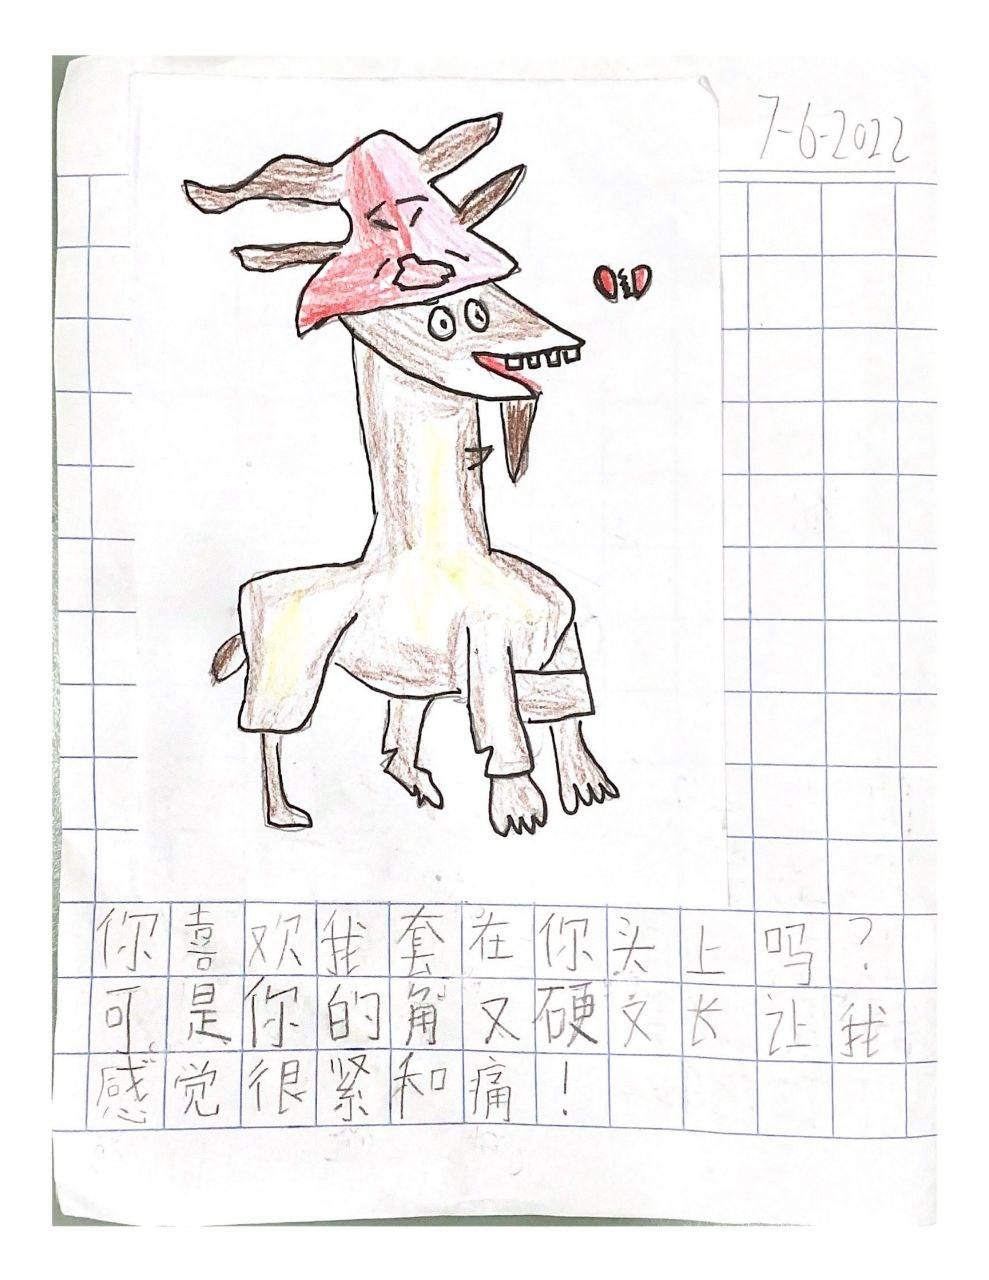 7-6-2022
你喜欢我套在你头上吗？
可是你的角又硬文长让我
感觉很紧和痛！